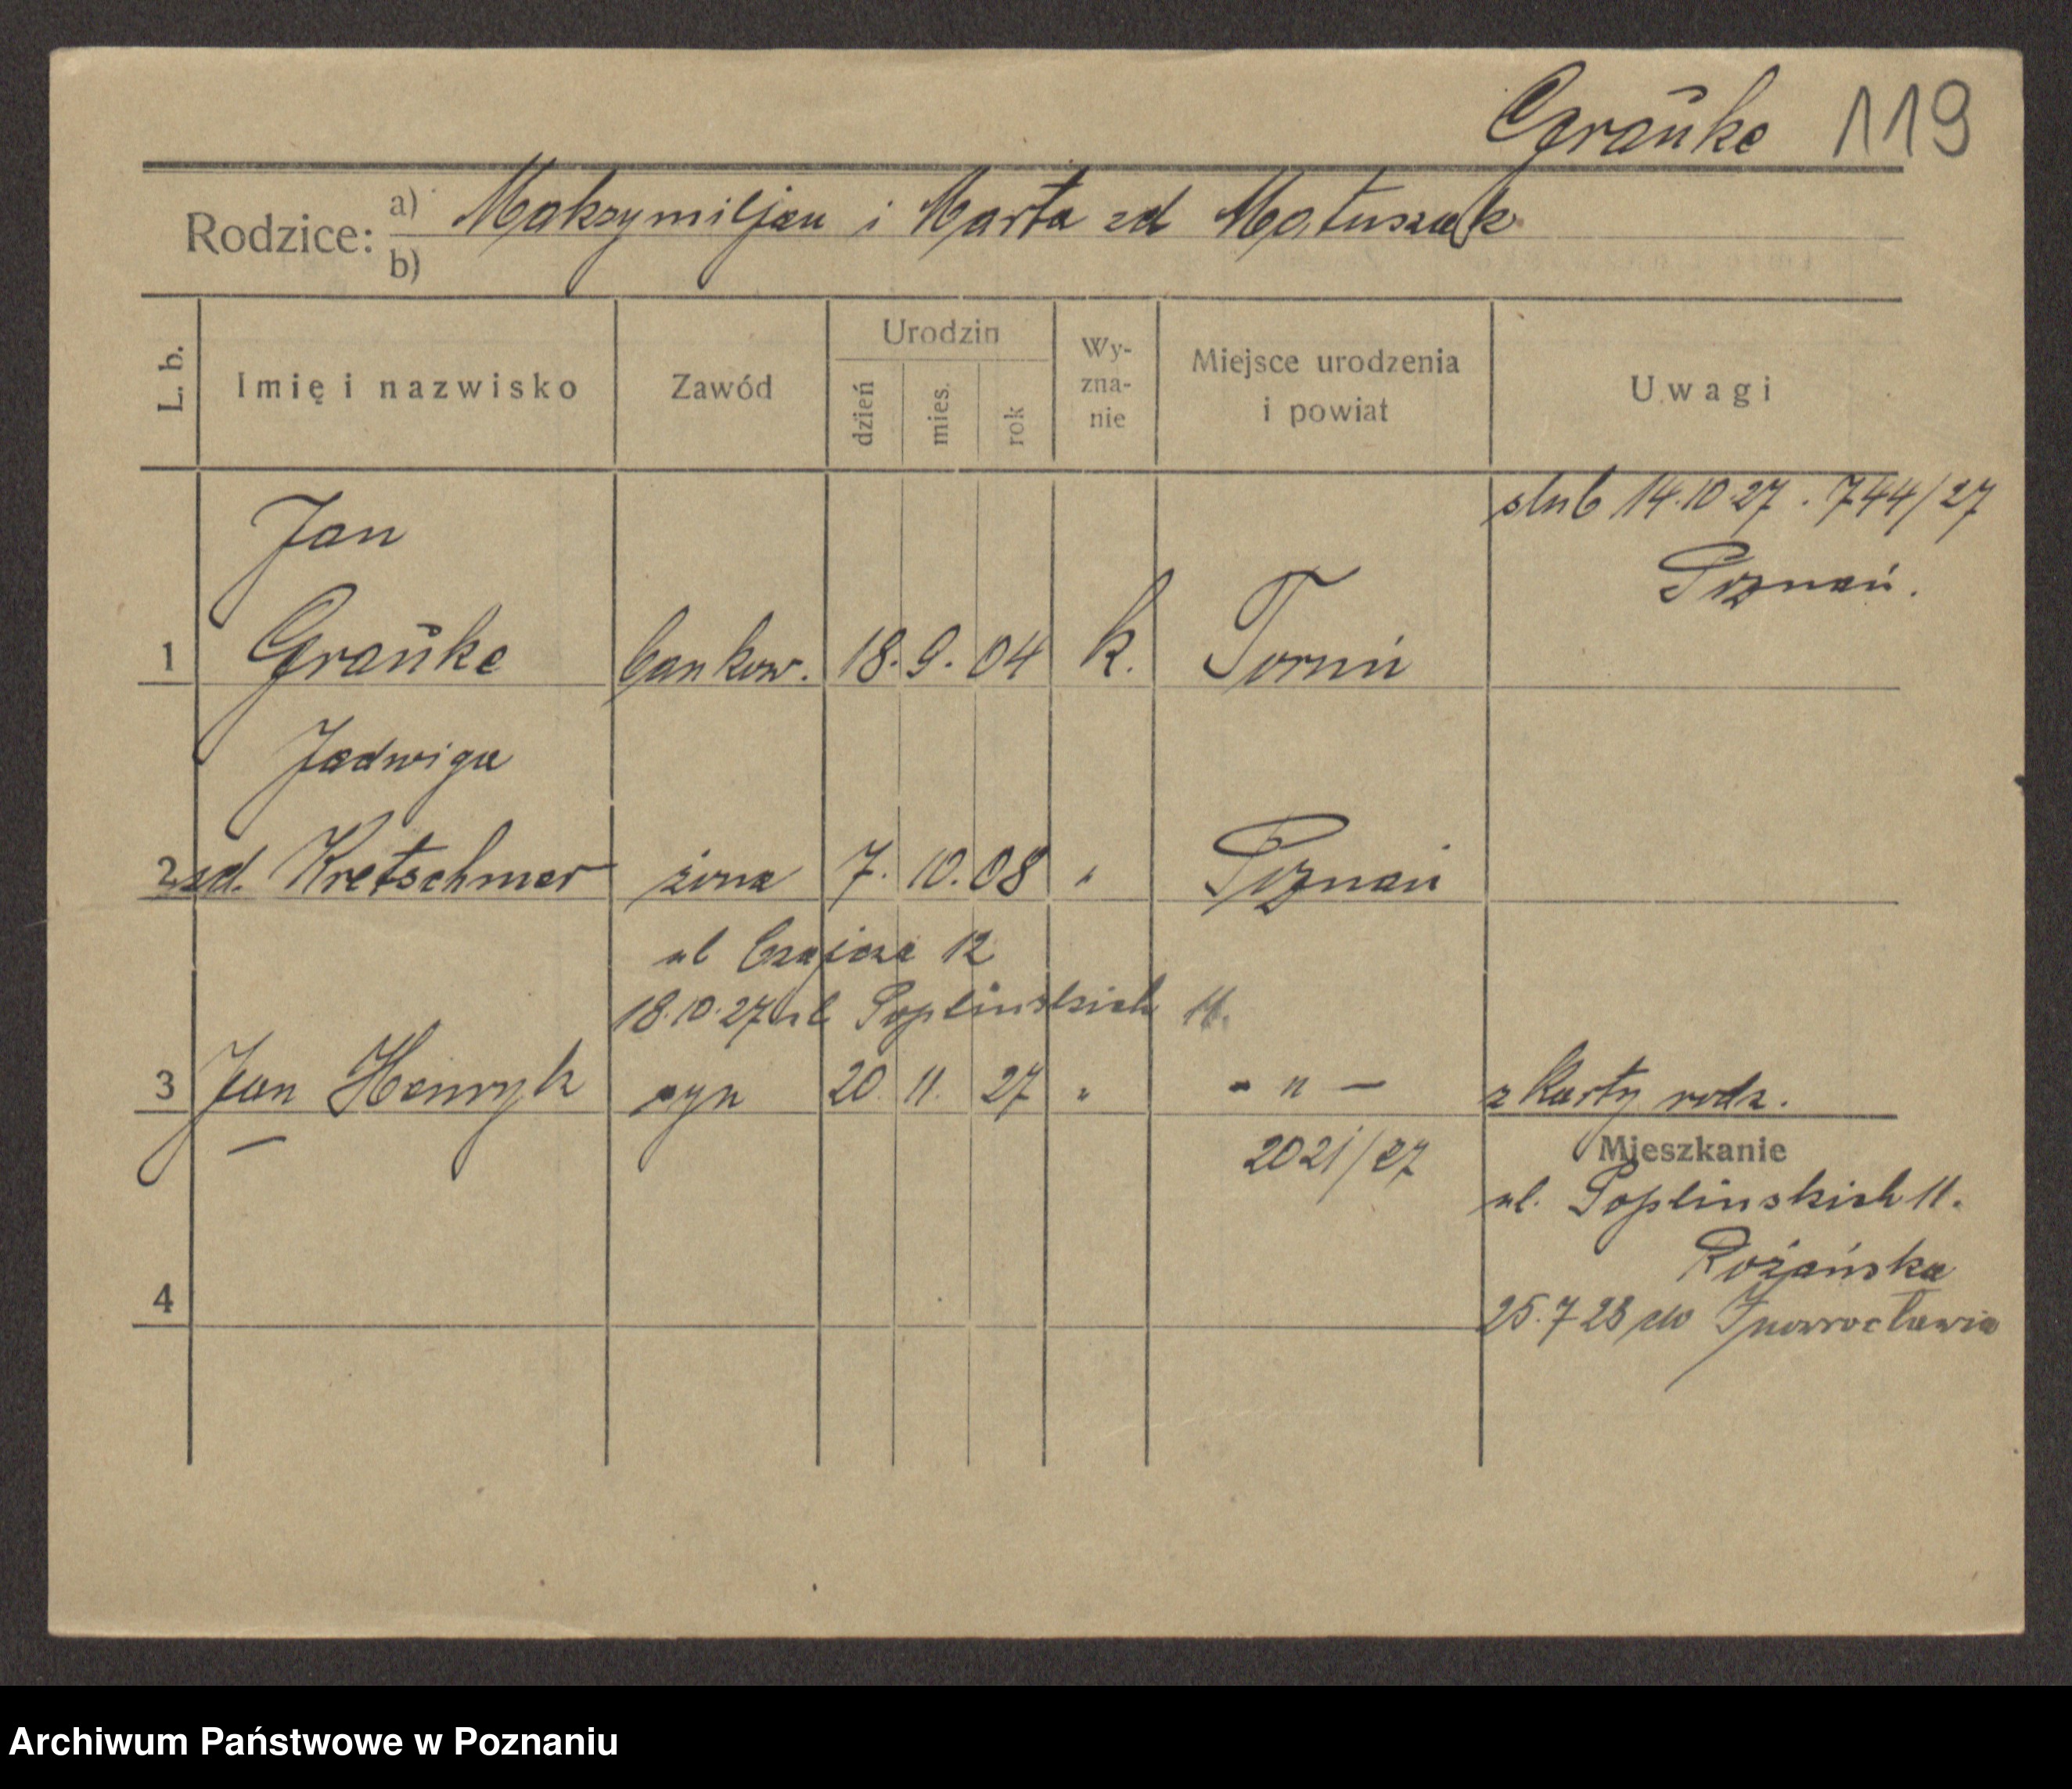 Graŭke 119
Rodzice: a) Maksymiljan i Marta zd Matuszak
b)
L. b.
Imię i nazwisko
Zawód
Urodzin
dzień
mies.
rok
Wy-
zna-
nie
Miejsce urodzenia
i powiat
Uwagi
ślub 14.10 27 . 744/27
Poznań.
Jan
1 Graŭke bankow. 18. 9. 04 k. Toruń
Jadwiga
2 zd. Kretschmer żona 7. 10. 08 " Poznań
ul Czajcza 12
18.10.27 ul Poplinskich 11.
3 Jan Henryk syn 20. 11. 27 " - " — z karty rodz.
2021/27
Mieszkanie
ul. Poplinskich 11.
Różańska
4
25.7 28 do Inowrocławia
Archiwum Państwowe w Poznaniu